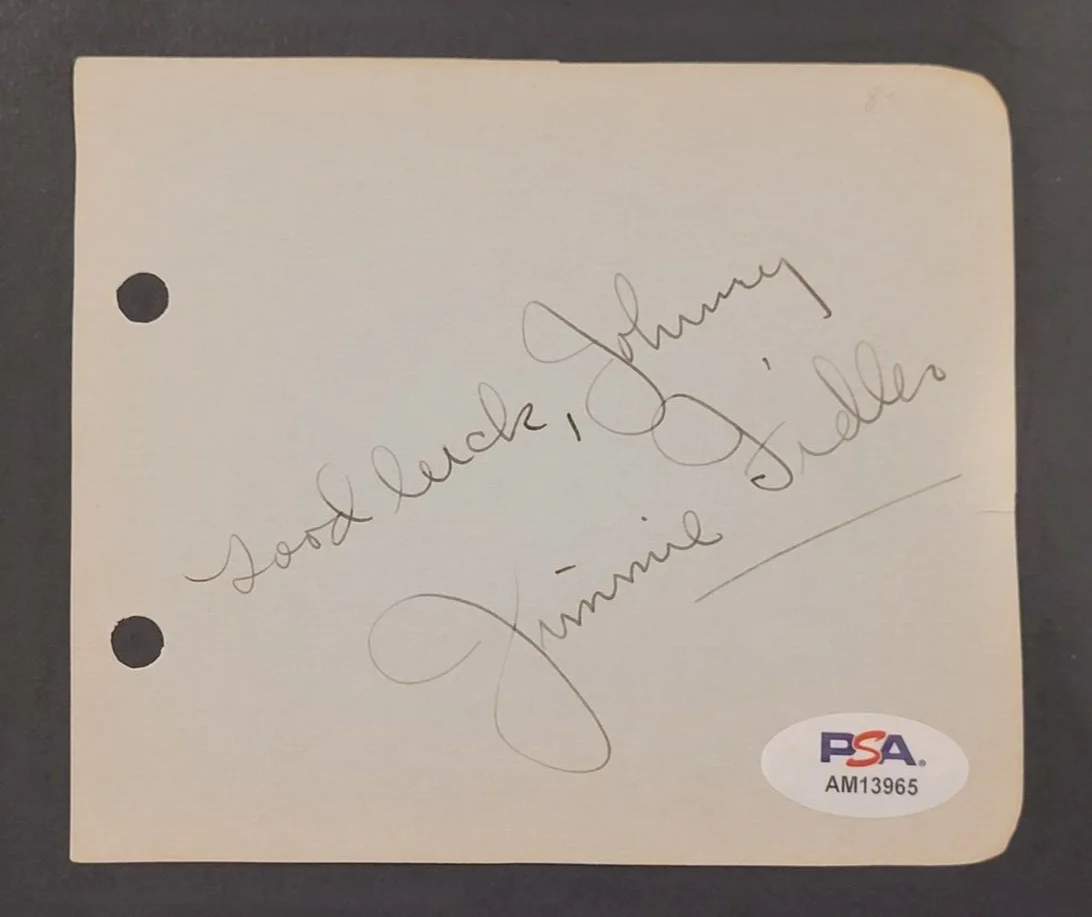 Good luck, Johnny
Jimmie Fidler
PSA.
AM13965